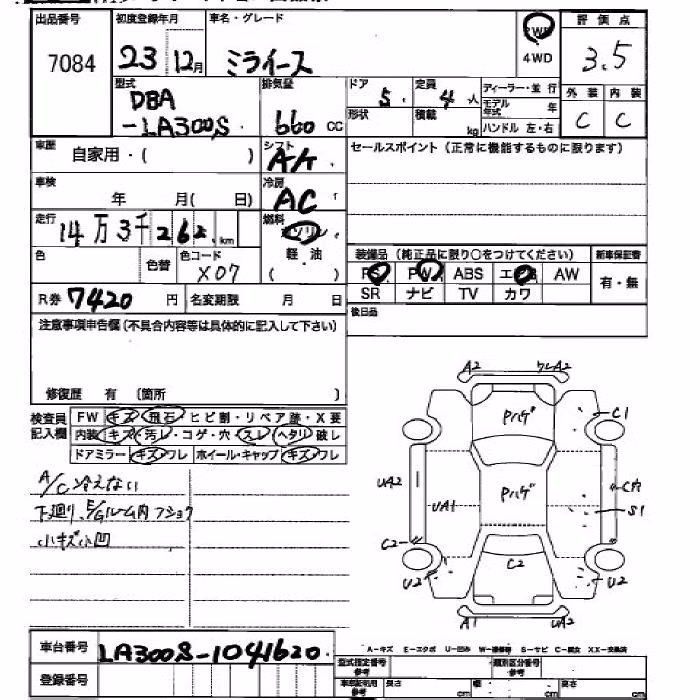 出品番号 初度登録年月 車名・グレード 評価点
7084 23 12月 ミライース 2WD 4WD 3.5
型式 排気量 ドア 定員 ディーラー・並行 外装 内装
DBA
-LA300S 660 CC 5 4人 モデル年式 年 C C
形状 積載 kg ハンドル 左・右
車歴 自家用・( ) シフト AT セールスポイント(正常に機能するものに限ります)
車検 年 月( 日) 冷房 AC
走行 14万3千262km 燃料 ガソリン
色 色替 色コード X07 軽・油 ( )
装備品(純正品に限り○をつけてください) 新車保証書
PS PW ABS エアB AW 有・無
SR ナビ TV カワ
R券 7420円 名変期限 月 日 後日品
注意事項申告欄(不具合内容等は具体的に記入して下さい)
修復歴 有 (箇所 )
検査員記入欄 FW キズ・飛石・ヒビ割・リペア跡・X要
内装 キズ・汚レ・コゲ・穴・スレ・ヘタリ・破レ
ドアミラー キズ・ワレ ホイール・キャップ キズ・ワレ
A/C冷えない
下廻り、E/Gルーム内フショク
小キズ小凹
A2 ワレA2
Pハゲ C1
UA2 UA1 Pハゲ C穴
S1
C2 C2
U2 U2
A1 UA2
車台番号 LA300S-1041620
A-キズ E-エクボ U-凹み W-補修跡 S-サビ C-腐食 XX-交換済
登録番号 型式指定番号 参考 類別区分番号 参考
車庫証明用 参考 長さ cm 幅 cm 高さ cm